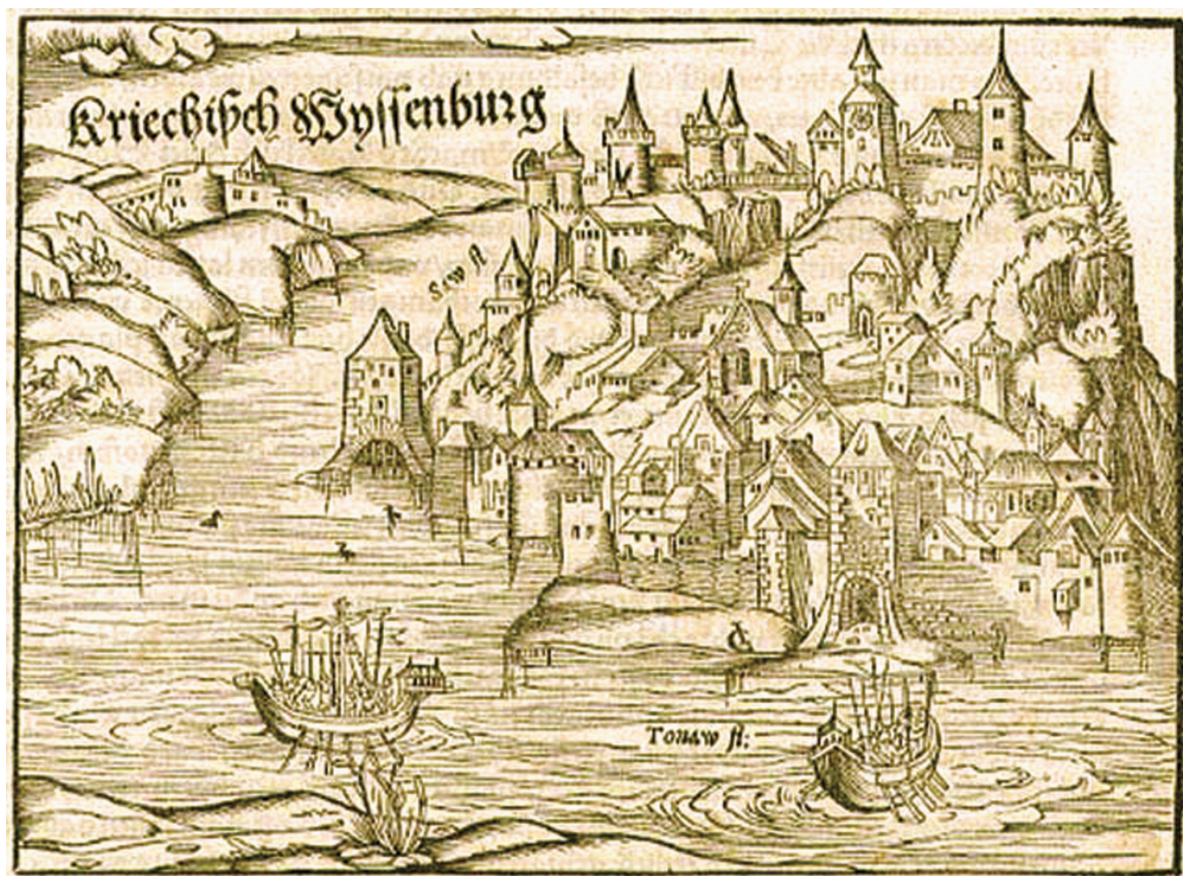 Kriechiſch Wyſſenburg
Saw fl.
Tonaw fl: